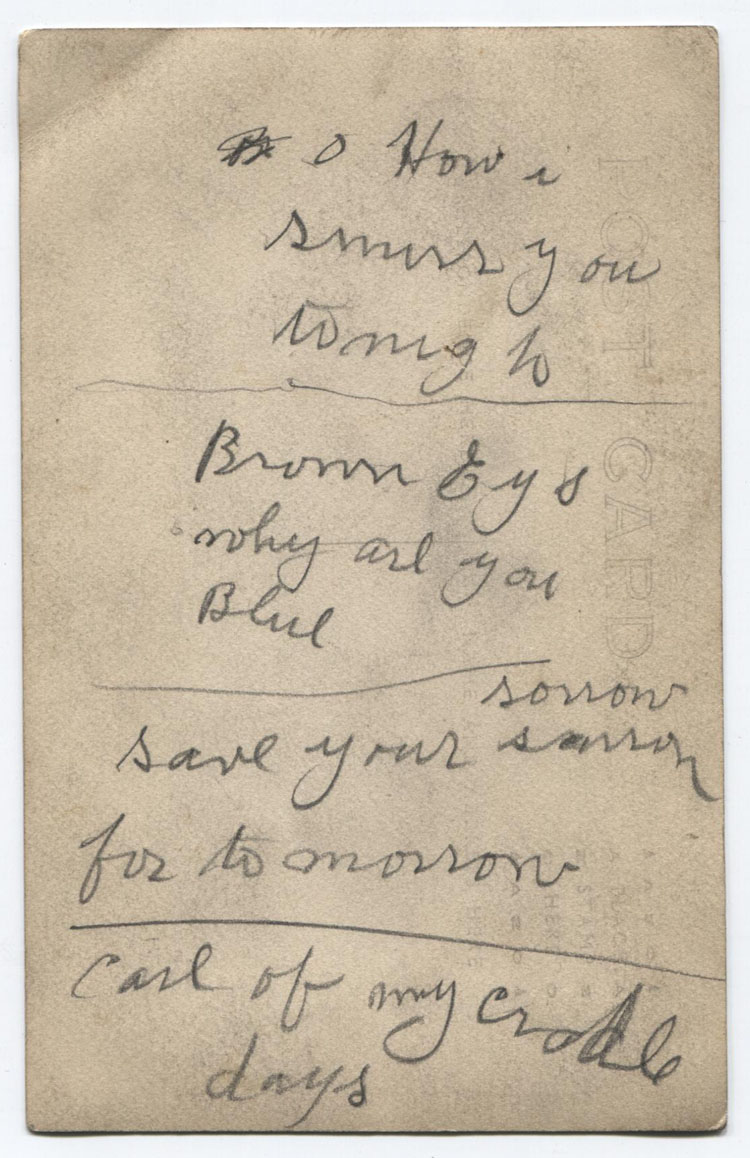 O How i
smiss you
tonigh
Brown Eys
why are you
Blue
sorrow
save your
for to morrow
Carl of my Cradle
days
POST CARD